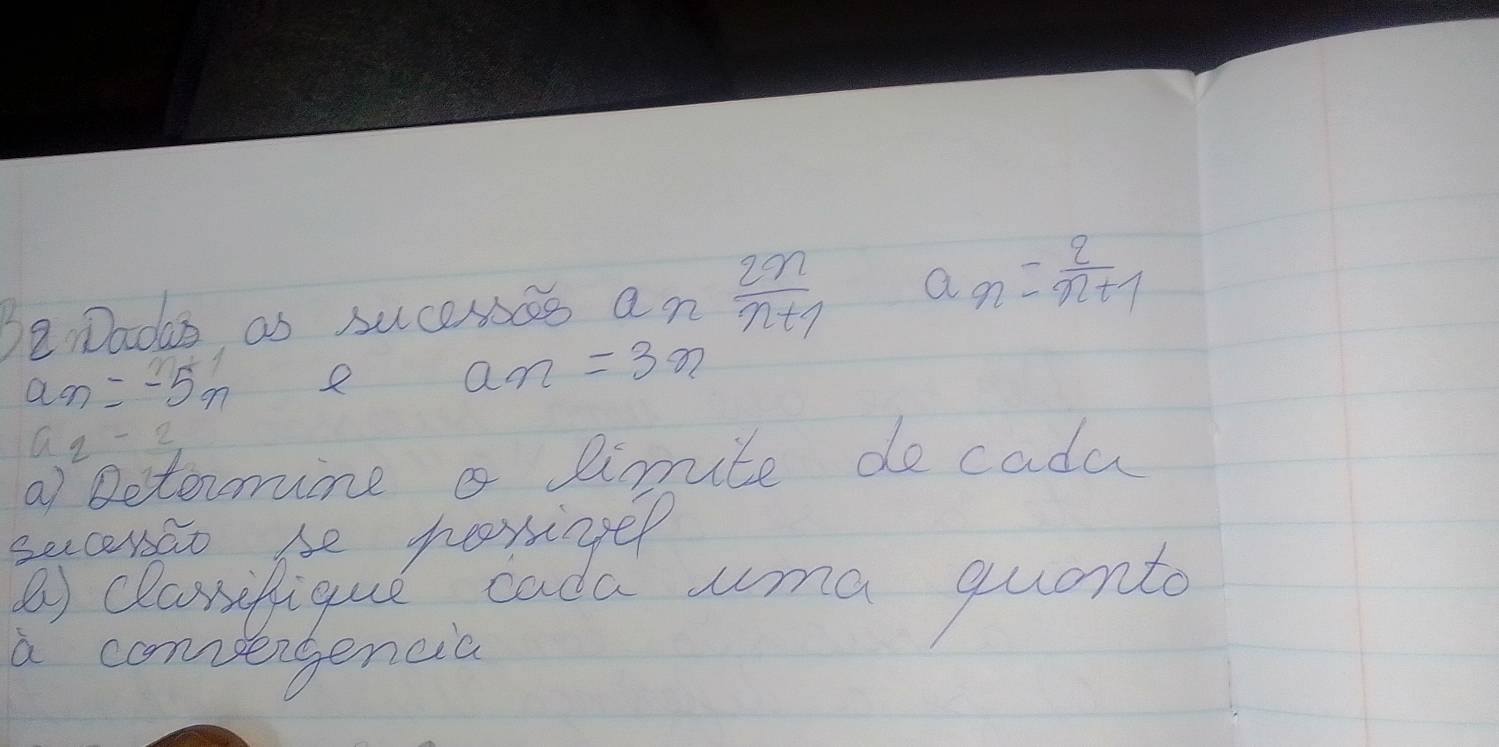 2 Dadas as sucessões an 2n/n+1 an = 2/n+1
an = -5n e an = 3n
a) Determine o limite de cada
sucessão se possivel
b) Classifique cada uma quonto
à convergencia